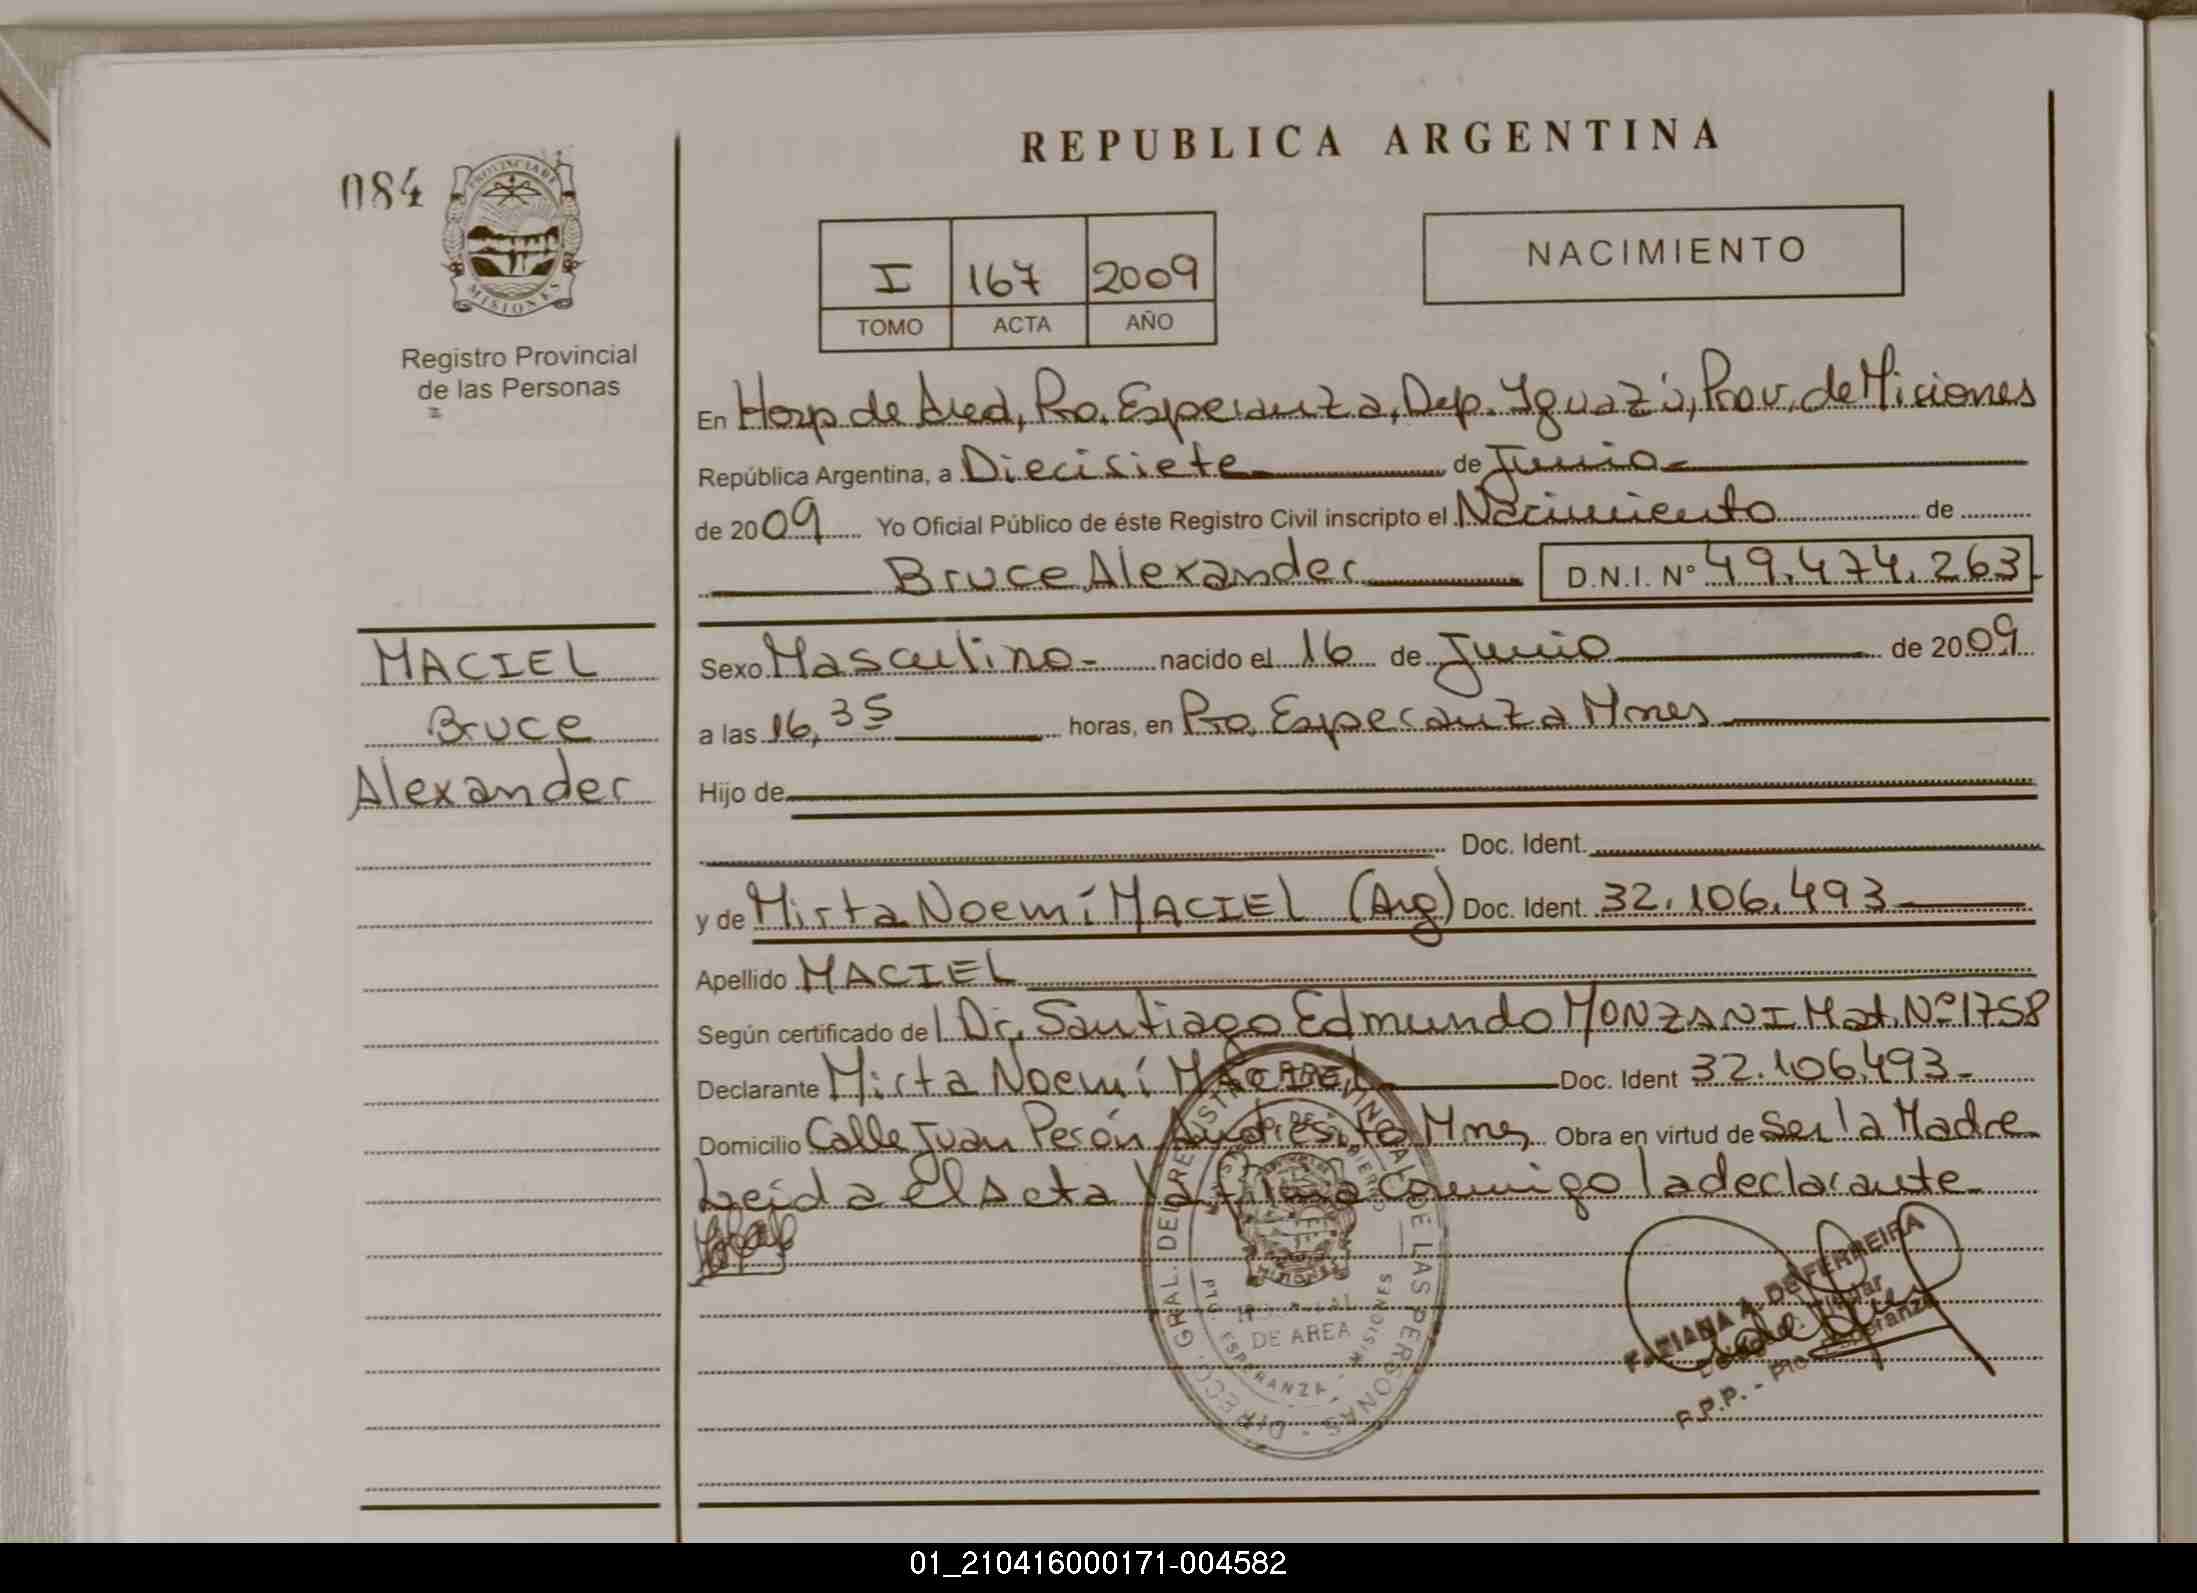 REPUBLICA ARGENTINA
084
PROVINCIA DE
MISIONES
Registro Provincial
de las Personas
I 167 2009
TOMO ACTA AÑO
NACIMIENTO
En Hosp de Area, Pto. Esperanza, Dep. Iguazú, Prov. de Misiones
República Argentina, a Diecisiete de Junio
de 2009 Yo Oficial Público de éste Registro Civil inscripto el Nacimiento de
Bruce Alexander D.N.I. N° 49.474.263
MACIEL
Bruce
Alexander
Sexo Masculino - nacido el 16 de Junio de 2009
a las 16,35 horas, en Pto. Esperanza Mnes
Hijo de
Doc. Ident.
y de Mirta Noemí MACIEL (Arg) Doc. Ident. 32.106.493
Apellido MACIEL
Según certificado del Dr. Santiago Edmundo MONZANI Mat. Nº 1758
Declarante Mirta Noemí MACIEL Doc. Ident 32.106.493
Domicilio Calle Juan Perón Andresito Mnes Obra en virtud de Ser la Madre
Leida el Acta la firma conmigo la declarante
DIRECC. GRAL. DEL REGISTRO PROVINCIAL DE LAS PERSONAS
HOSPITAL
DE AREA
PTO. ESPERANZA - MISIONES
FABIANA A. DE FERREIRA
Titular
R.P.P. - Pto Esperanza
01_210416000171-004582